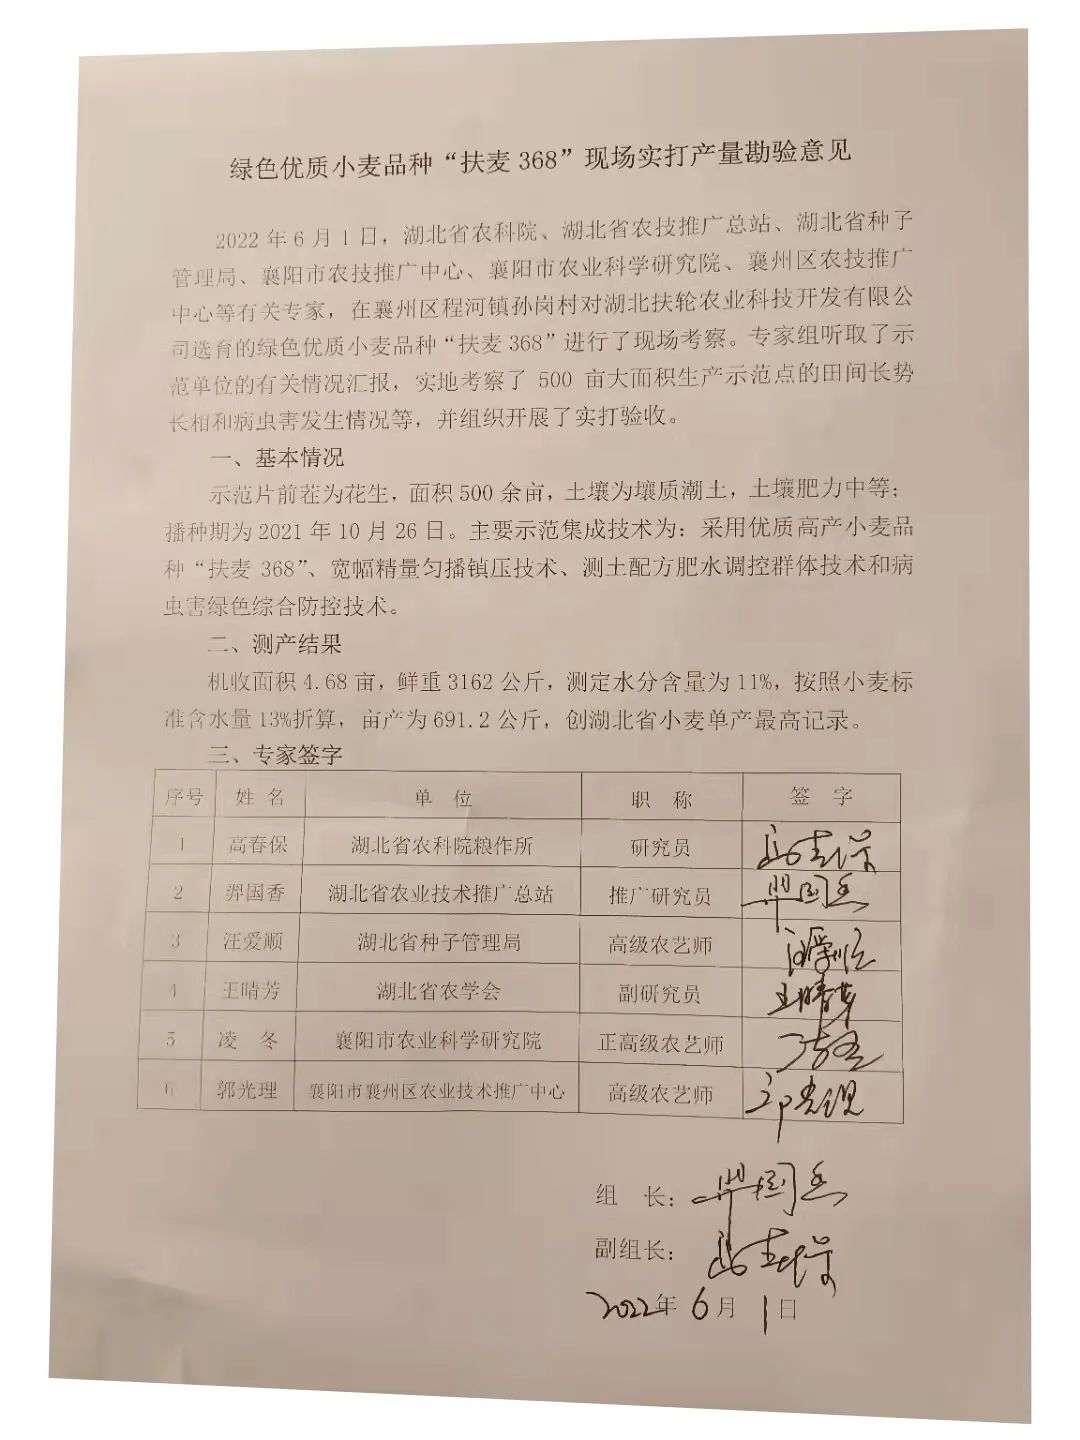 绿色优质小麦品种“扶麦 368”现场实打产量勘验意见
2022 年 6 月 1 日，湖北省农科院、湖北省农技推广总站、湖北省种子
管理局、襄阳市农技推广中心、襄阳市农业科学研究院、襄州区农技推广
中心等有关专家，在襄州区程河镇孙岗村对湖北扶轮农业科技开发有限公
司选育的绿色优质小麦品种“扶麦 368”进行了现场考察。专家组听取了示
范单位的有关情况汇报，实地考察了 500 亩大面积生产示范点的田间长势
长相和病虫害发生情况等，并组织开展了实打验收。
一、基本情况
示范片前茬为花生，面积 500 余亩，土壤为壤质潮土，土壤肥力中等；
播种期为 2021 年 10 月 26 日。主要示范集成技术为：采用优质高产小麦品
种“扶麦 368”、宽幅精量匀播镇压技术、测土配方肥水调控群体技术和病
虫害绿色综合防控技术。
二、测产结果
机收面积 4.68 亩，鲜重 3162 公斤，测定水分含量为 11%，按照小麦标
准含水量 13%折算，亩产为 691.2 公斤，创湖北省小麦单产最高记录。
三、专家签字
序号 姓 名 单 位 职 称 签 字
1 高春保 湖北省农科院粮作所 研究员 高春保
2 羿国香 湖北省农业技术推广总站 推广研究员 羿国香
3 汪爱顺 湖北省种子管理局 高级农艺师 汪爱顺
4 王晴芳 湖北省农学会 副研究员 王晴芳
5 凌 冬 襄阳市农业科学研究院 正高级农艺师 凌冬
6 郭光理 襄阳市襄州区农业技术推广中心 高级农艺师 郭光理
组 长：羿国香
副组长：高春保
2022年 6月 1日